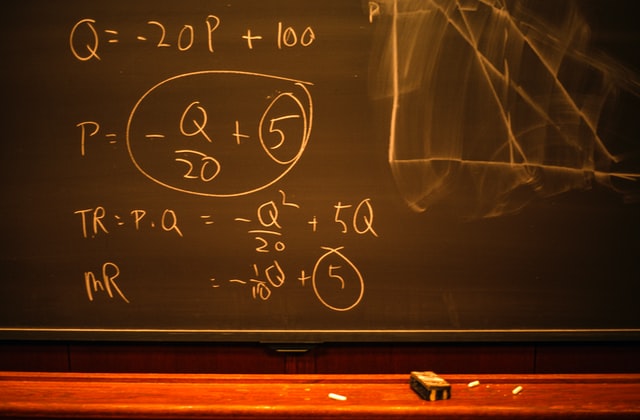 Q = -20P + 100
P
P = - Q/20 + 5
TR = P.Q = - Q²/20 + 5Q
MR = - 1/10 Q + 5